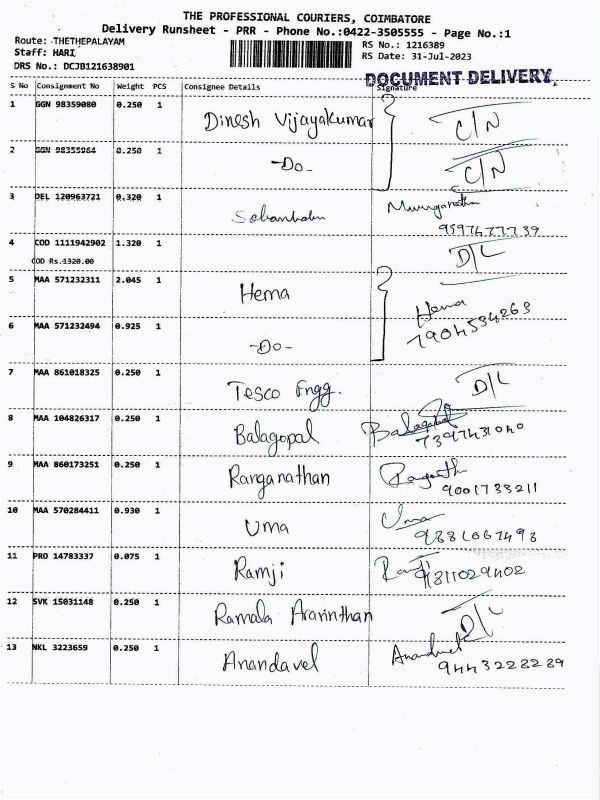 THE PROFESSIONAL COURIERS, COIMBATORE
Delivery Runsheet - PRR - Phone No.:0422-3505555 - Page No.:1
Route: THETHEPALAYAM RS No.: 1216389
Staff: HARI RS Date: 31-Jul-2023
DRS No.: DCJB121638901
DOCUMENT DELIVERY.
S No Consignment No Weight PCS Consignee Details Signature
1 GGN 98359080 0.250 1 Dinesh Vijayakumar C/N
2 GGN 98355964 0.250 1 -Do- C/N
3 DEL 120963721 0.320 1
4 COD 1111942902 1.320 1 D/L
COD Rs.1320.00
5 MAA 571232311 2.045 1 Hema Hema
7904534263
6 MAA 571232494 0.925 1 -Do-
7 MAA 861018325 0.250 1 Tesco Engg. D/L
8 MAA 104826317 0.250 1 Balagopal Balagopal
7397431040
9 MAA 860173251 0.250 1 Ranganathan
9001733211
10 MAA 570284411 0.930 1 Uma Uma
11 PRO 14783337 0.075 1 Ramji
9811029402
12 SVK 15031148 0.250 1 Ramala D/L
13 NKL 3223659 0.250 1 Anandavel Anandavel
9443228289